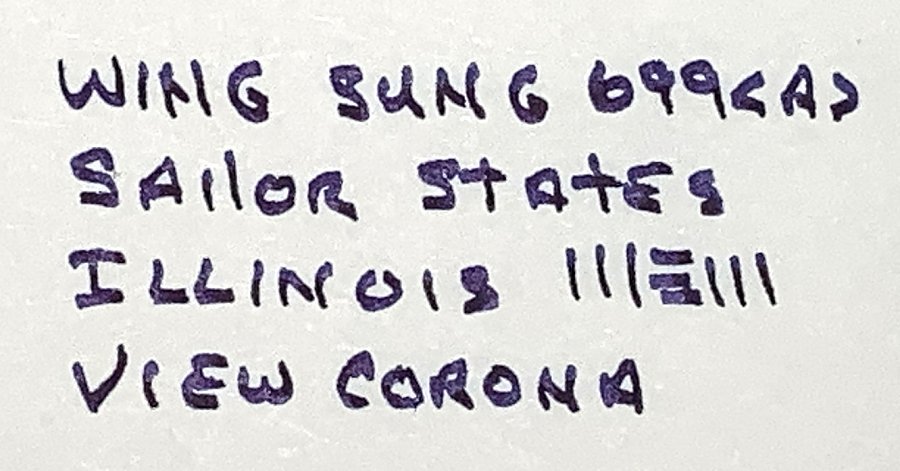 WING SUNG 699<A>
SAIlOR StAtES
ILLINOIS |||☰|||
VIEW CORONA